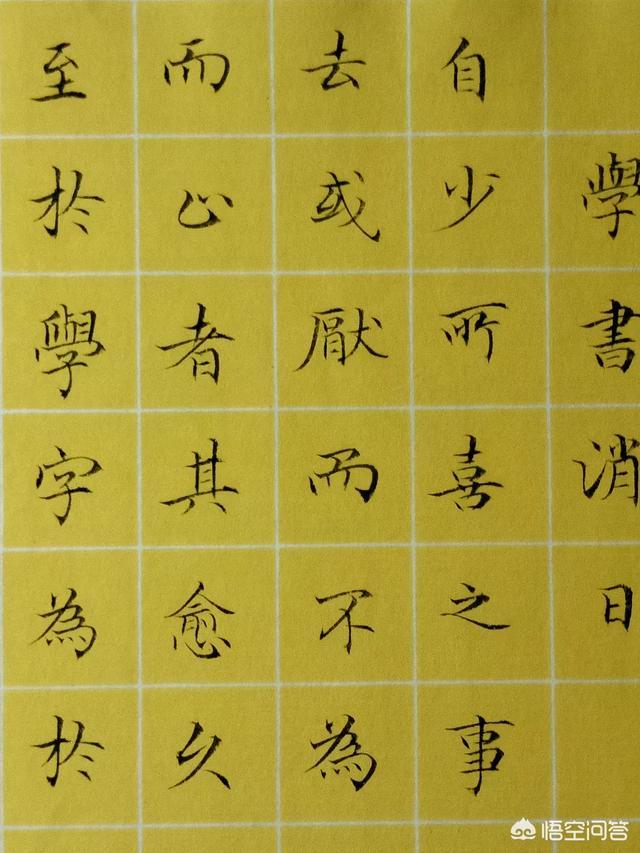 學書消日
自少所喜之事
去或厭而不為
而止者其愈久
至於學字為於
悟空问答